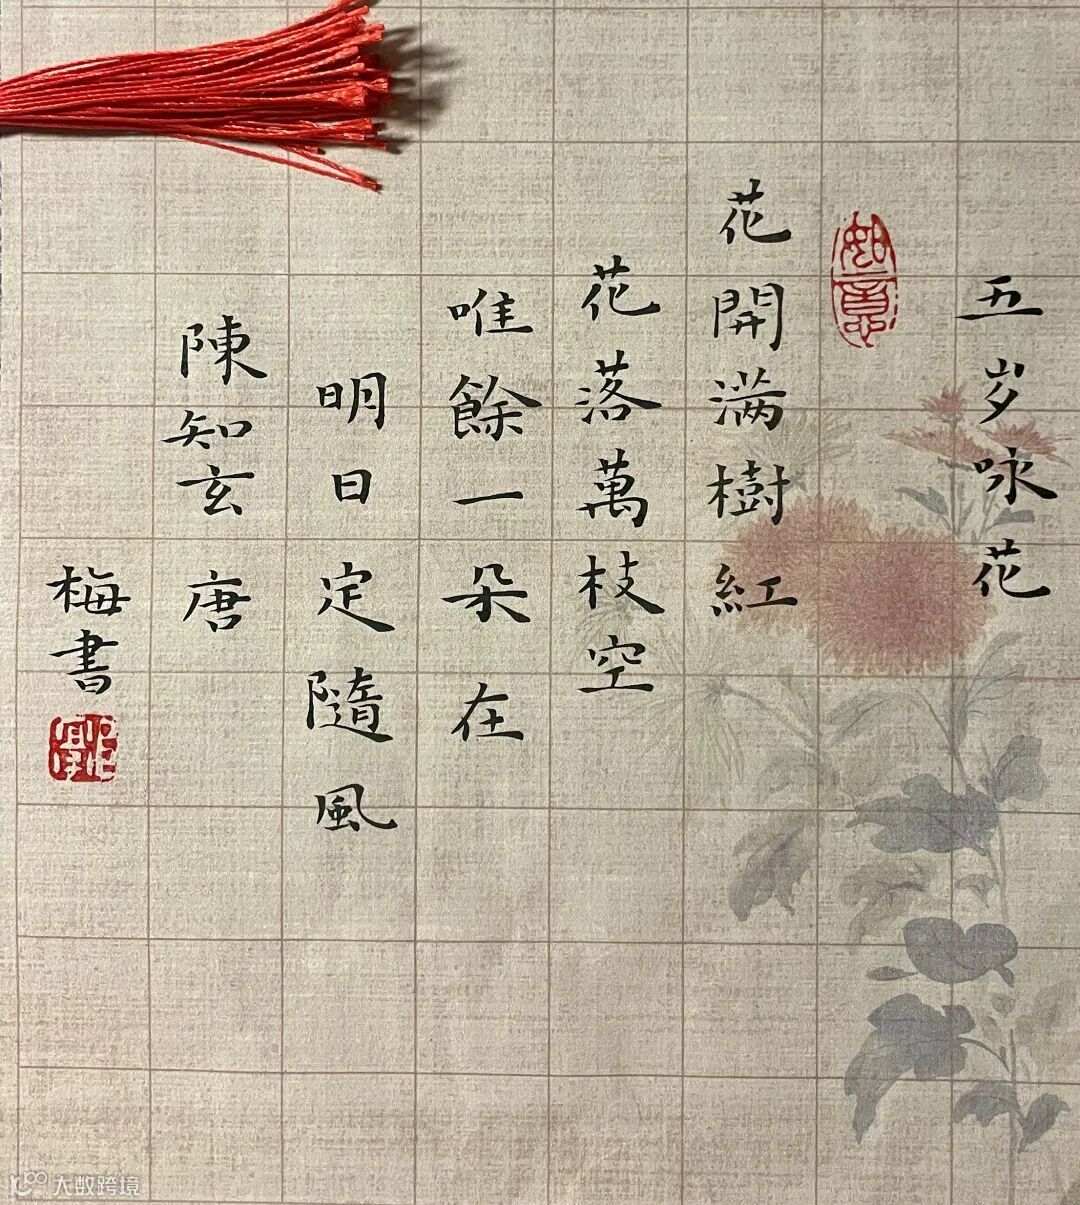 五岁咏花
如意
花開满樹紅
花落萬枝空
唯餘一朵在
明日定隨風
陳知玄 唐
梅書
大数跨境